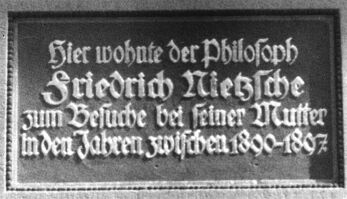 Hier wohnte der Philosoph
Friedrich Nietzsche
zum Besuche bei seiner Mutter
in den Jahren zwischen 1890-1897